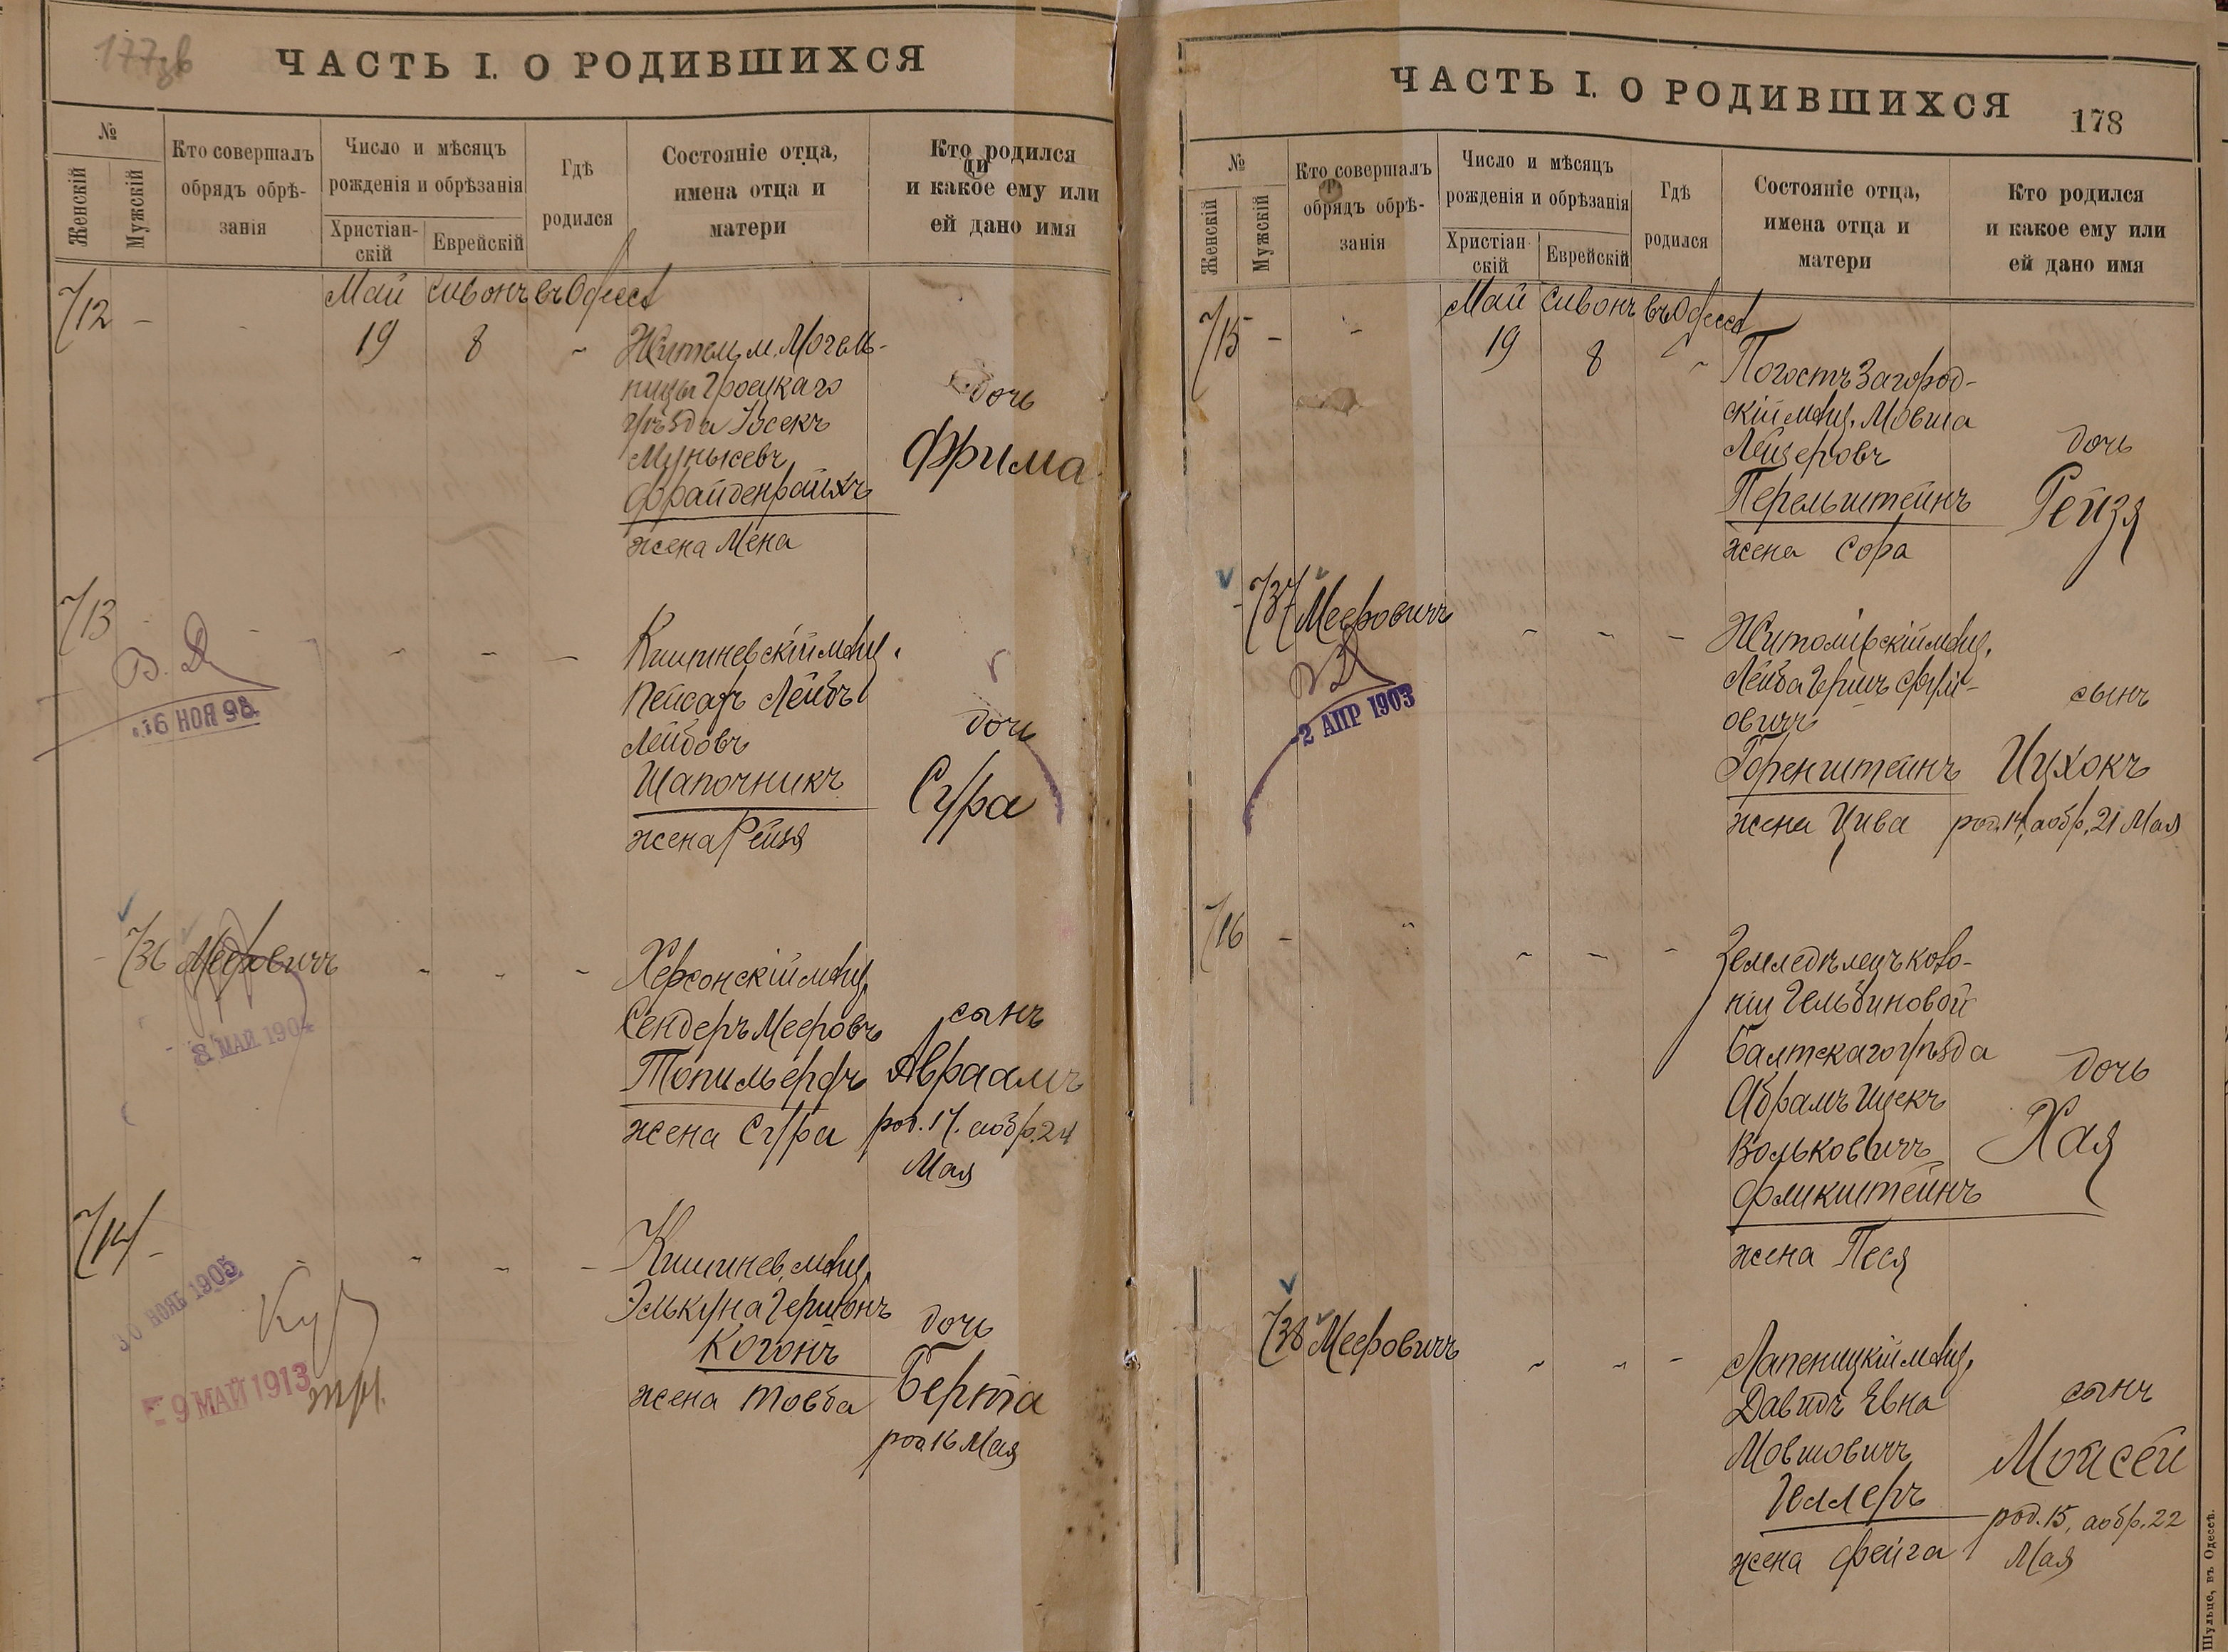 177об
ЧАСТЬ I. О РОДИВШИХСЯ
№
Женскій
Мужскій
Кто совершалъ
обрядъ обрѣ-
занія
Число и мѣсяцъ
рожденія и обрѣзанія
Христіан-
скій
Еврейскій
Гдѣ
родился
Состояніе отца,
имена отца и
матери
Кто родился
и какое ему или
ей дано имя
Май Сивонъ въ Одессѣ
712 - - 19 8 -
Жител. м. Могель-
ницы Гроецкаго
уѣзда Іосекъ
Мунысевъ
Фрайденрайхъ
жена Мена
дочь
Фрима
713 - - - - -
В. Д.
16 НОЯ 98
Кишиневскій мѣщ.
Пейсахъ Лейбъ
Лейбовъ
Шапочникъ
жена Рейзя
дочь
Сура
- 736 Мееровичъ - - -
8 МАЙ 1904
Херсонскій мѣщ.
Сендеръ Мееровъ
Топильерфъ
жена Сура
сынъ
Авраамъ
род. 17. а обр. 24
Мая
714 - - - - -
30 НОЯБ 1905
9 МАЙ 1913
Кишинев. мѣщ.
Элькуна Гершонъ
Когонъ
жена Товба
дочь
Берта
род. 16 Мая
ЧАСТЬ I. О РОДИВШИХСЯ
178
№
Женскій
Мужскій
Кто совершалъ
обрядъ обрѣ-
занія
Число и мѣсяцъ
рожденія и обрѣзанія
Христіан-
скій
Еврейскій
Гдѣ
родился
Состояніе отца,
имена отца и
матери
Кто родился
и какое ему или
ей дано имя
Май Сивонъ въ Одессѣ
715 - - 19 8 -
Погостъ Загород-
скій мѣщ. Мовша
Лейзеровъ
Перельштейнъ
жена Сора
дочь
Рейзя
- 737 Мееровичъ - - -
2 АПР 1903
Житомірскій мѣщ.
Лейба Гершъ Сруль-
овичъ
Горенштейнъ
жена Цива
сынъ
Ицхокъ
род. 14, а обр. 21 Мая
716 - - - - -
Земледѣлецъ коло-
ніи Гельбиновой
Балтскаго уѣзда
Абрамъ Ицекъ
Вольковичъ
Фликштейнъ
жена Песя
дочь
Хая
738 Мееровичъ - - -
Лапеницкій мѣщ.
Давидъ Евна
Мовшовичъ
Геллеръ
жена Фейга
сынъ
Мойсей
род. 15, а обр. 22
Мая
Шульце, въ Одессѣ.